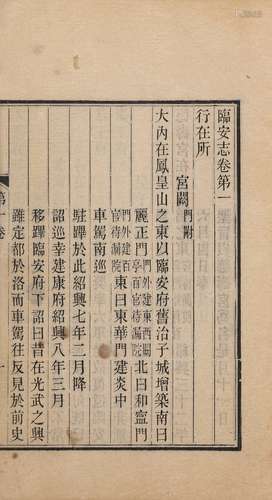 臨安志卷第一
行在所
宮闕 門附
大內在鳳皇山之東以臨安府舊治子城增築南曰
麗正門 門外建東西闕亭百官待漏院 北曰和寧門
門外建百官待漏院 東曰東華門建炎中
車駕南巡
駐蹕於此紹興七年二月降
詔巡幸建康府紹興八年三月
移蹕臨安府下詔曰昔在光武之興
雖定都於洛而車駕往反見於前史
第一卷
一